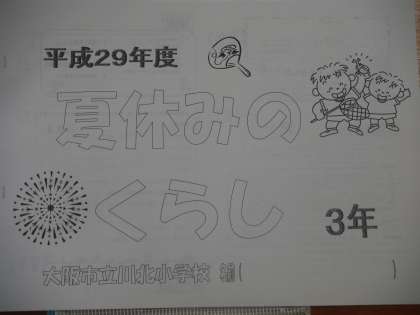 平成29年度
夏休みの
くらし
3年
大阪市立川北小学校 (        )